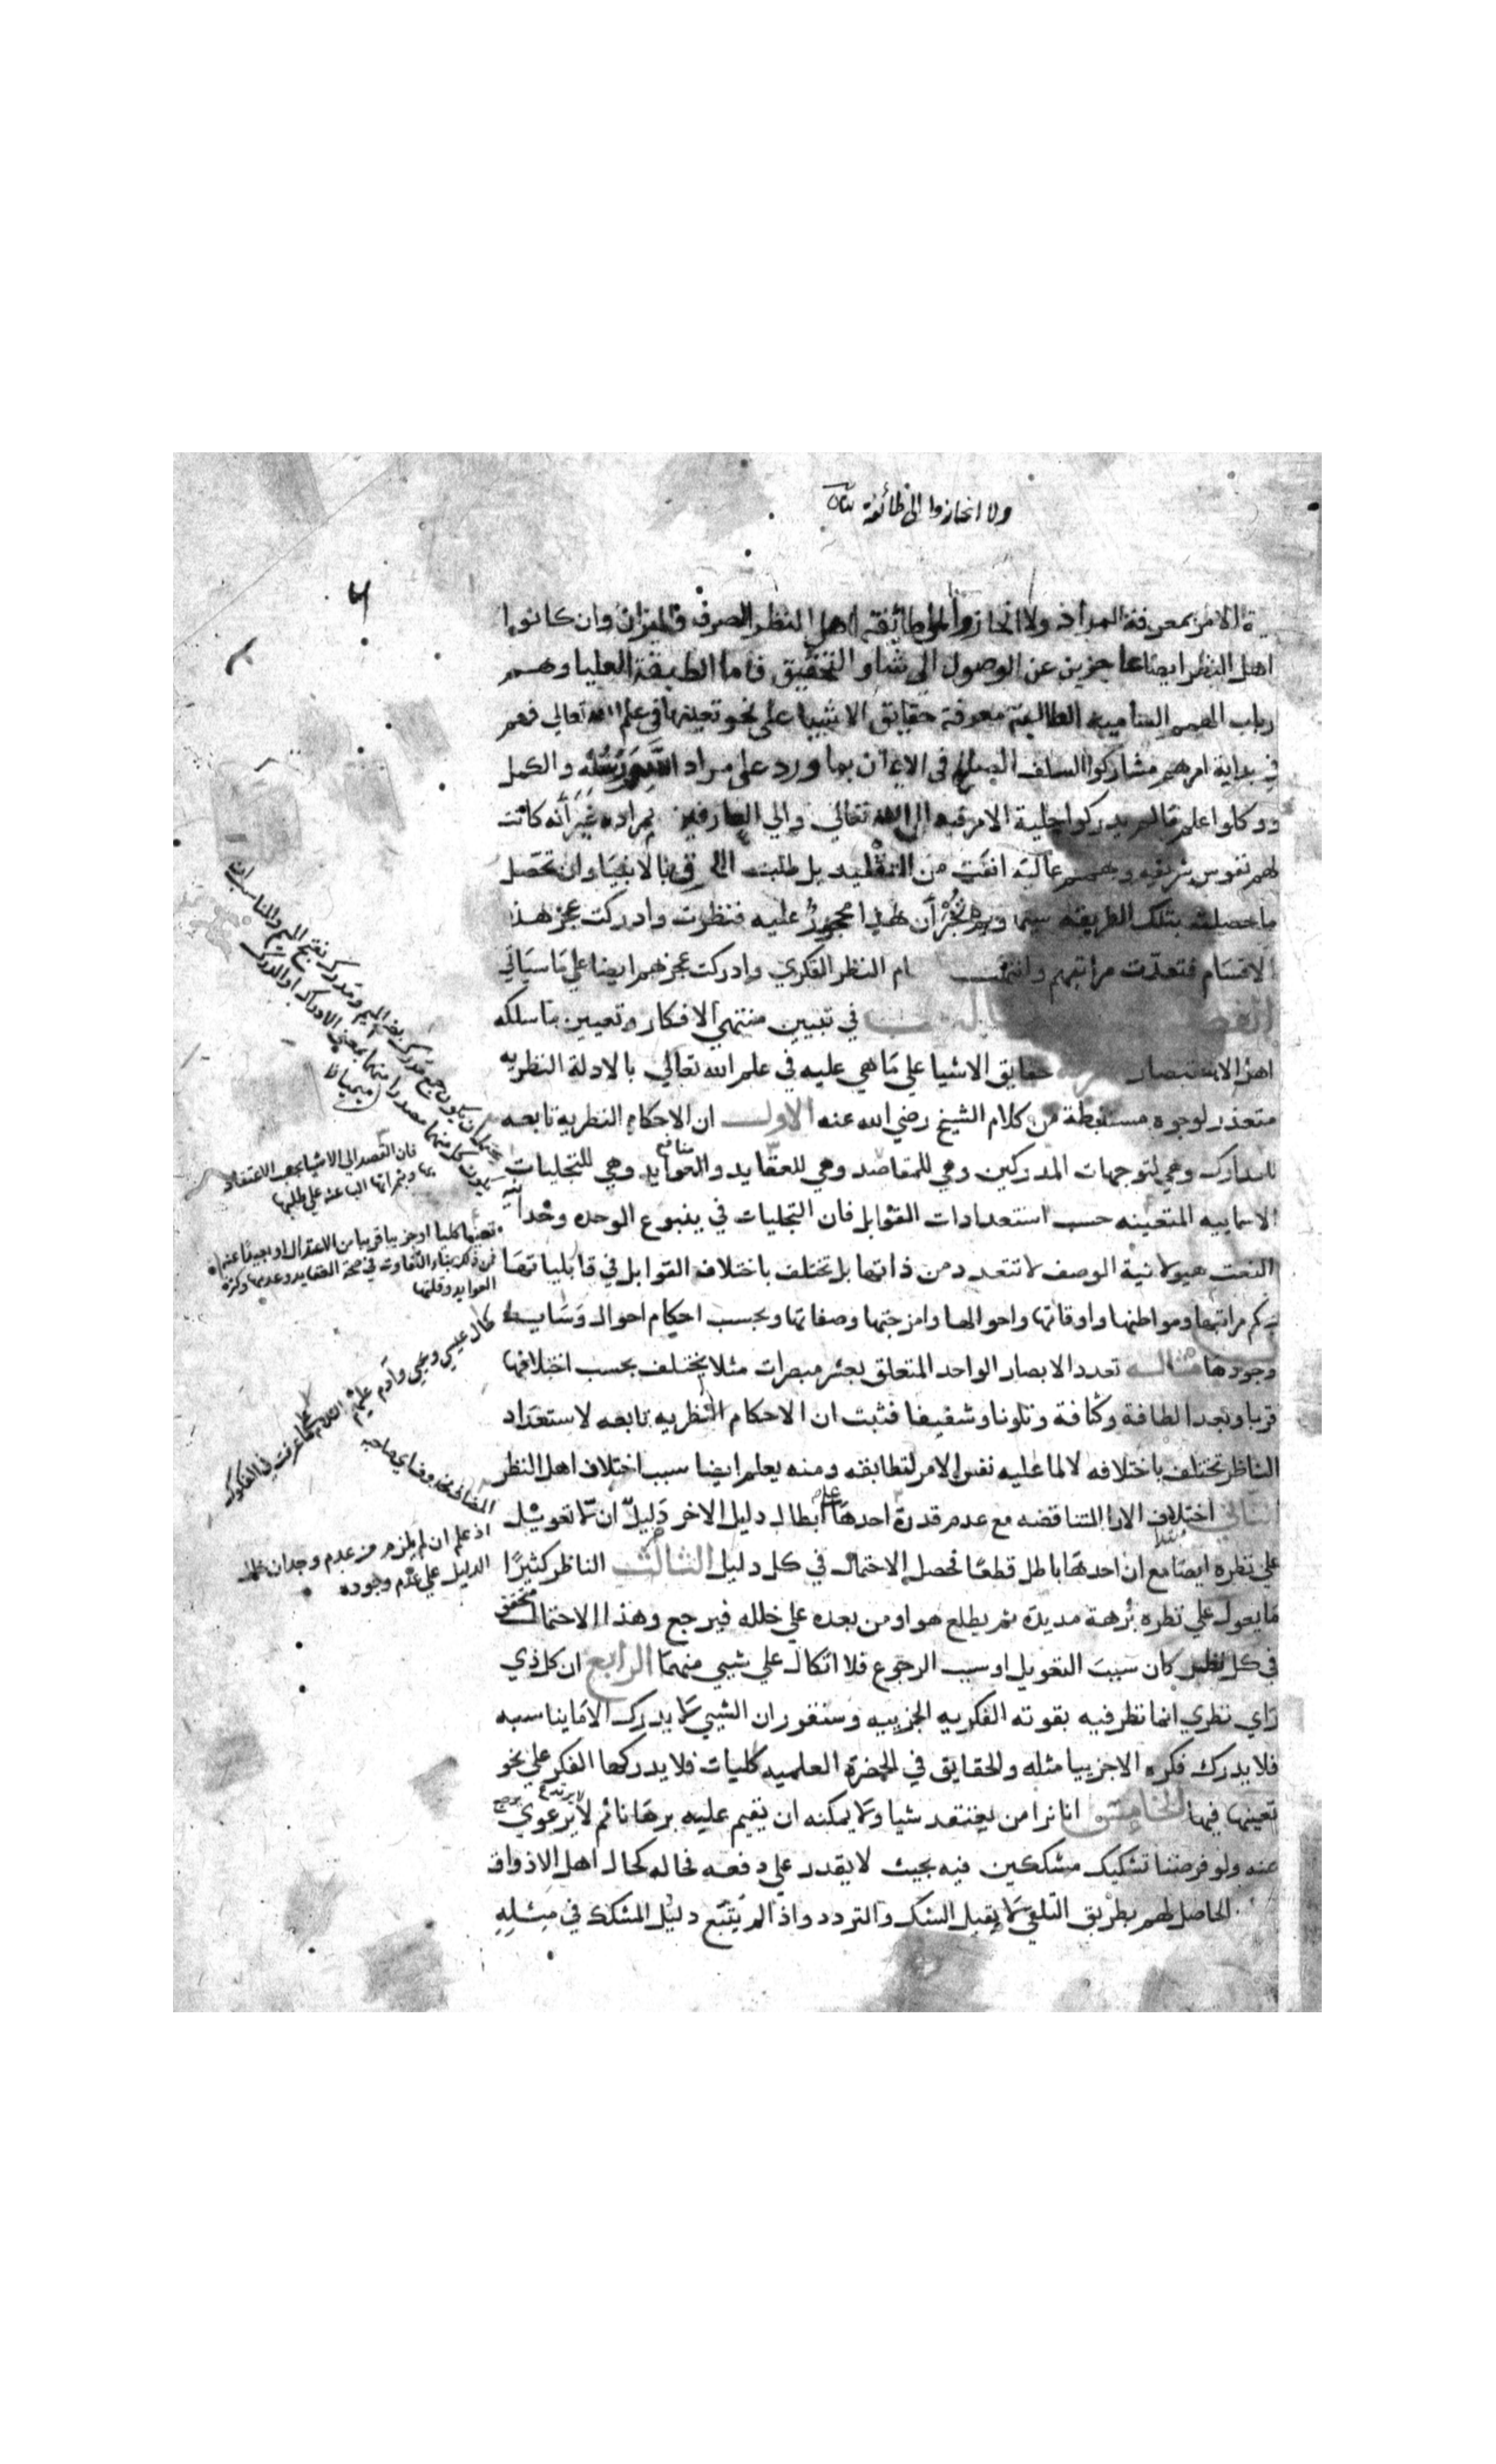 ولا انحازوا الى طائفة بيان
ة الامر بمعرفة المراد ولا انحازوا الى طائفة اهل النظر الصرف والميزان وان كانوا
اهل النظر ايضا عاجزين عن الوصول الى شاو التحقيق فاما الطبقة العليا وهم
رباب الهمم السامية الطالبة معرفة حقايق الاشيا على نحو تعينها في علم الله تعالى فهم
في بداية امرهم مشاركوا السلف الصالح في الايمان بما ورد على مراد الله ورسله والكمل
ووكلوا علم ما لم يدركوا جلية الامر فيه الى الله تعالى والي العارفين بمراده غير انه كانت
لهم نفوس شريفه وهمم عالية انفت من التقليد بل طلبت بالانبيا وان تحصل
ما حصلت بتلك الطريقه سيما ولم تخبر ان هذا محجور عليه فنظرت وادركت عجز هذه
الاقسام فتعدت مراتبهم النظر الفكري وادركت عجزهم ايضا على ما سياتي
في تبيين منتهي الافكار وتعيين ما سلكه
اهل الاستبصار حقايق الاشيا علي ما هي عليه في علم الله تعالي بالادلة النظريه
متعذر لوجوه مستنبطة من كلام الشيخ رضي الله عنه الاول ان الاحكام النظريه تابعه
للمدارك وهي لتوجهات المدركين وهي للمقاصد وهي للعقايد والعوايد منافع وهي للتجليات
الاسماييه المتعينه حسب استعدادات القوابل فان التجليات في ينبوع الوحده وحدانية
النعت هيولانية الوصف لا تتعدد من ذاتها بل تختلف باختلاف القوابل في قابلياتها
بحكم مراتبها ومواطنها واوقاتها واحوالها وامزجتها وصفاتها وبحسب احكام احوال وسايط
وجودها مثاله تعدد الابصار الواحد المتعلق بعشر مبصرات مثلا يختلف بحسب اختلافها
قربا وبعدا لطافة وكثافة وتلونا وشفيفا فثبت ان الاحكام النظريه تابعه لاستعداد
الناظر تختلف باختلافه لا لما عليه نفس الامر لتطابقه ومنه يعلم ايضا سبب اختلاف اهل النظر
الثاني اختلاف الارا المتناقضه مع عدم قدرة احدها على ابطال دليل الاخر دليل ان لا تعويل
علي نظره ايضا مع ان احدها باطل قطعا فحصل الاحتمال في كل دليل الثالث الناظر كثيرًا
ما يعول علي نظره برهة مديدة ثم يطلع هو او من بعده علي خلله فيرجع وهذا الاحتمال متحقق
في كل نظر كان سبب التعويل او سبب الرجوع فلا اتكال علي شيي منهما الرابع ان كل ذي
راي نظري انما نظر فيه بقوته الفكريه الجزييه وسنقرر ان الشيي لا يدرك الا ما يناسبه
فلا يدرك فكره الا جزييا مثله والحقايق في الحضرة العلميه كليات فلا يدركها الفكر على نحو
تعينها فيها الخامس انا نرا من يعتقد شيا ولا يمكنه ان يقيم عليه برهانا ثم لا يرعوي لا يرتدع
عنه ولو فرضنا تشكيك مشككين فيه بحيث لا يقدر علي دفعه فحاله كحال اهل الاذواق
الحاصل لهم بطريق التلقي لا يقبل الشك والتردد واذا لم يتبع دليل المشكك في مثله
فان القصد الى الاشيا بحسب الاعتقاد
بها وبثمراتها الباعثه على طلبها
العوايد وقلتها
كحال عيسي ويحيي وادم عليهم السلام كما عرفت في الفكوك
اذ علم ان لم يلزم من عدم وجدان خلل
الدليل علي عدم وجوده